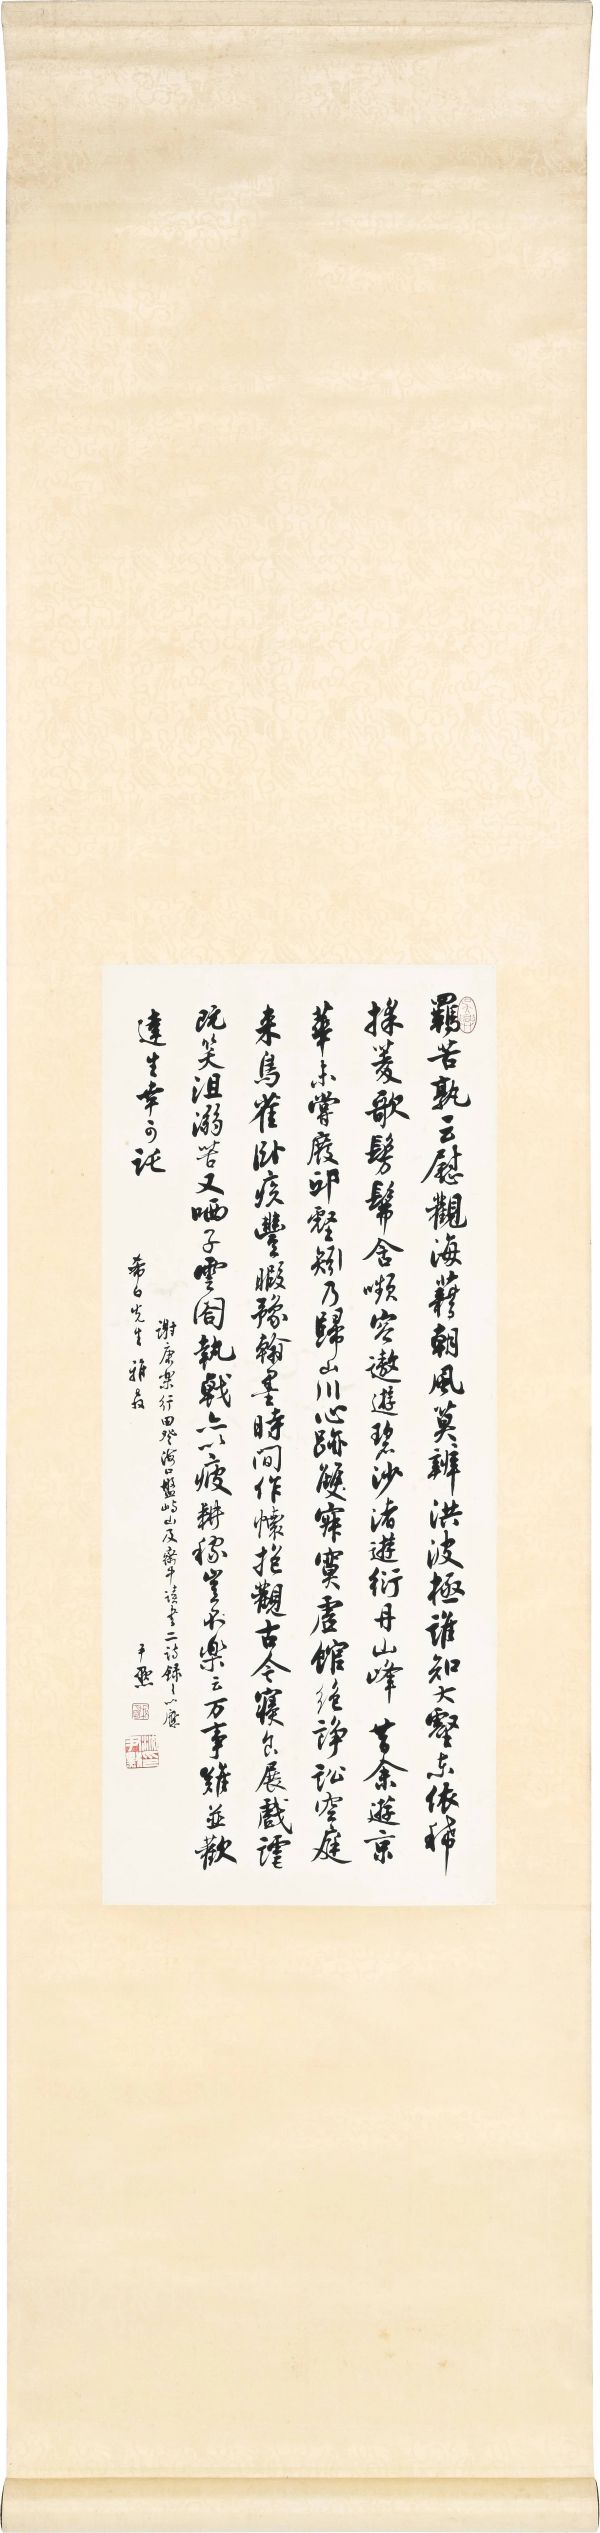 羈苦孰云慰觀海藉朝風莫辨洪波極誰知大壑東依稀
採菱歌髣髴含嚬容遨遊碧沙渚遊衍丹山峰 昔余遊京
華未嘗廢邱壑矧乃歸山川心跡雙寂寞虛館絕諍訟空庭
來鳥雀臥疾豐暇豫翰墨時間作懷抱觀古今寢食展戲謔
既笑沮溺苦又哂子雲閣執戟亦以疲耕稼豈云樂万事難並歡
達生幸可託
謝康樂行田登海口盤嶼山及齋中讀書二詩錄之以應
希白先生雅教 尹默